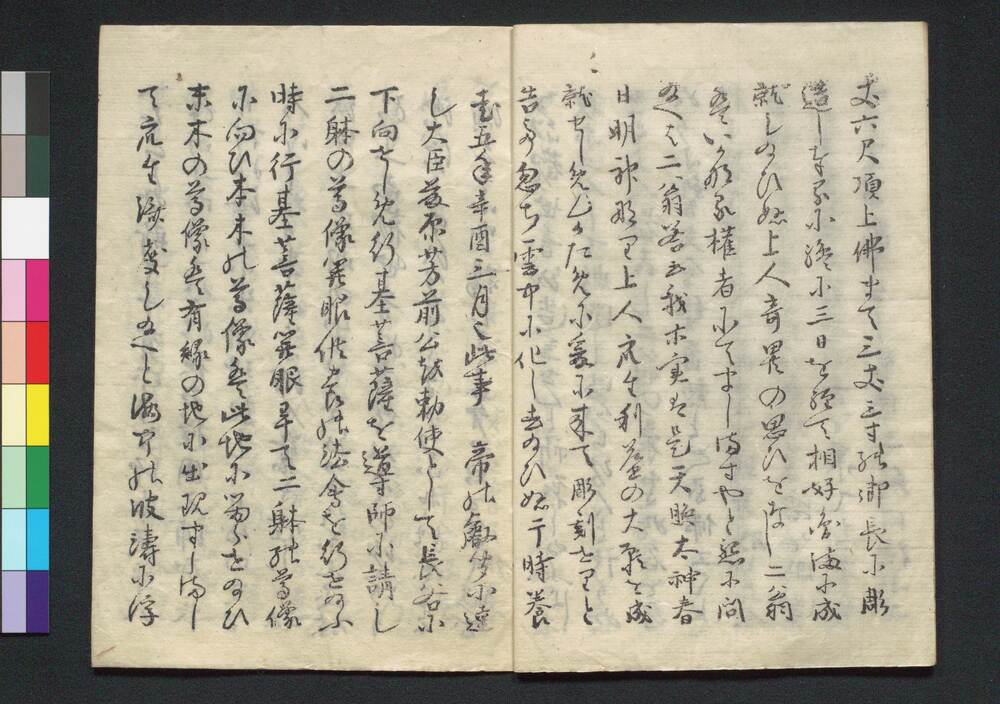 丈六尺頂上佛まて三丈三寸の御長に彫
造し奉るに終に三日を経て相好圓満に成
就しのひぬ上人奇異の思ひをなし二翁
はいかなる権者にてましますやと懇に問
へは二翁答玉我木実は是天照太神春
日明神なり上人衆生利益の大願を成
就せしめんかために爰に来て彫刻せりと
告て忽ち雲中に化し去のひぬ于時養
老五年辛酉三月之此事 帝の叡聞に達
し大臣藤原芳前公を勅使として長谷に
下向せしめ行基菩薩を導師に請し
二躰の尊像開眼供養の法會を行せのふ
時に行基菩薩開眼畢て二躰の尊像
に向ひ本木の尊像は此地に留らせのひ
末木の尊像は有縁の地に出現ましまし
て衆生済度しへと海中の波濤に浮